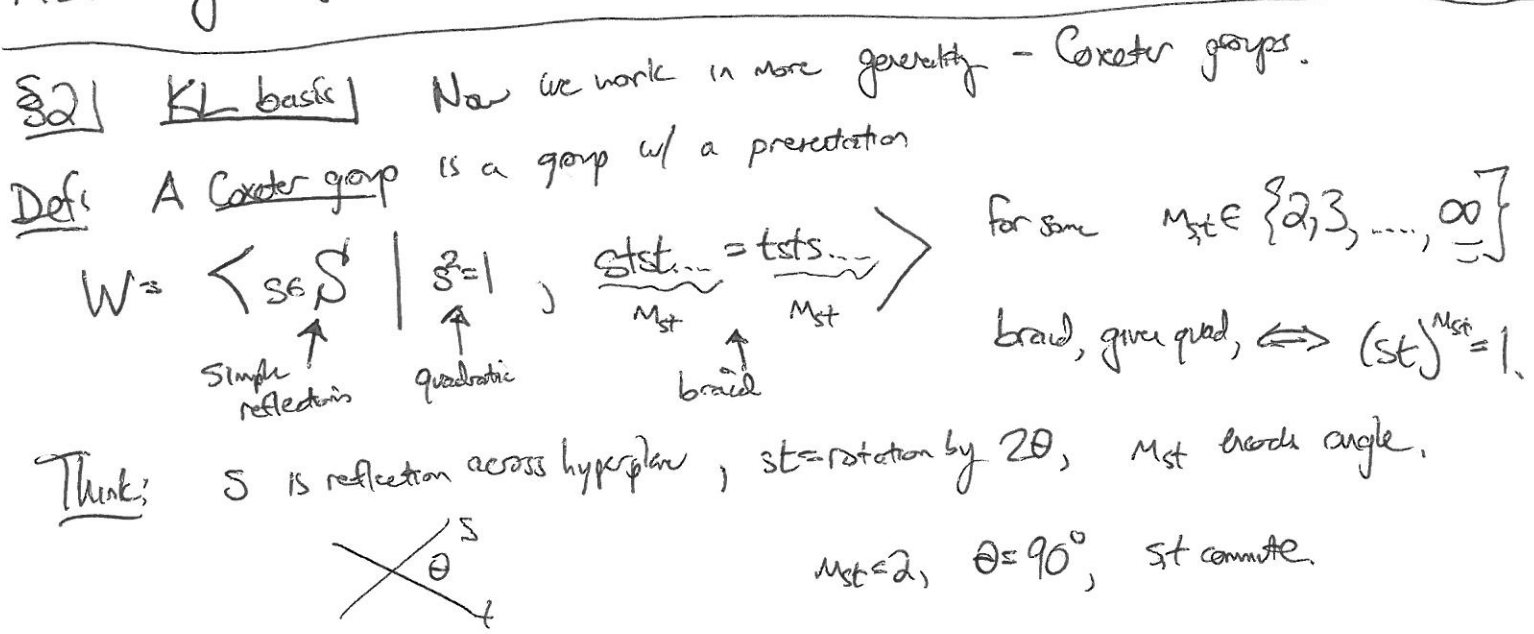 §2 KL basis Now we work in more generality - Coxeter groups.
Def: A Coxeter group is a group w/ a presentation
W = < s∈S | s²=1 , stst... = tsts... > for some m_st ∈ {2,3,....,∞}
m_st m_st
simple reflections quadratic braid braid, given quad, ⟺ (st)^{m_st} = 1.
Think: s is reflection across hyperplane, st=rotation by 2θ, m_st encode angle.
s
θ m_st=2, θ=90°, st commute.
t